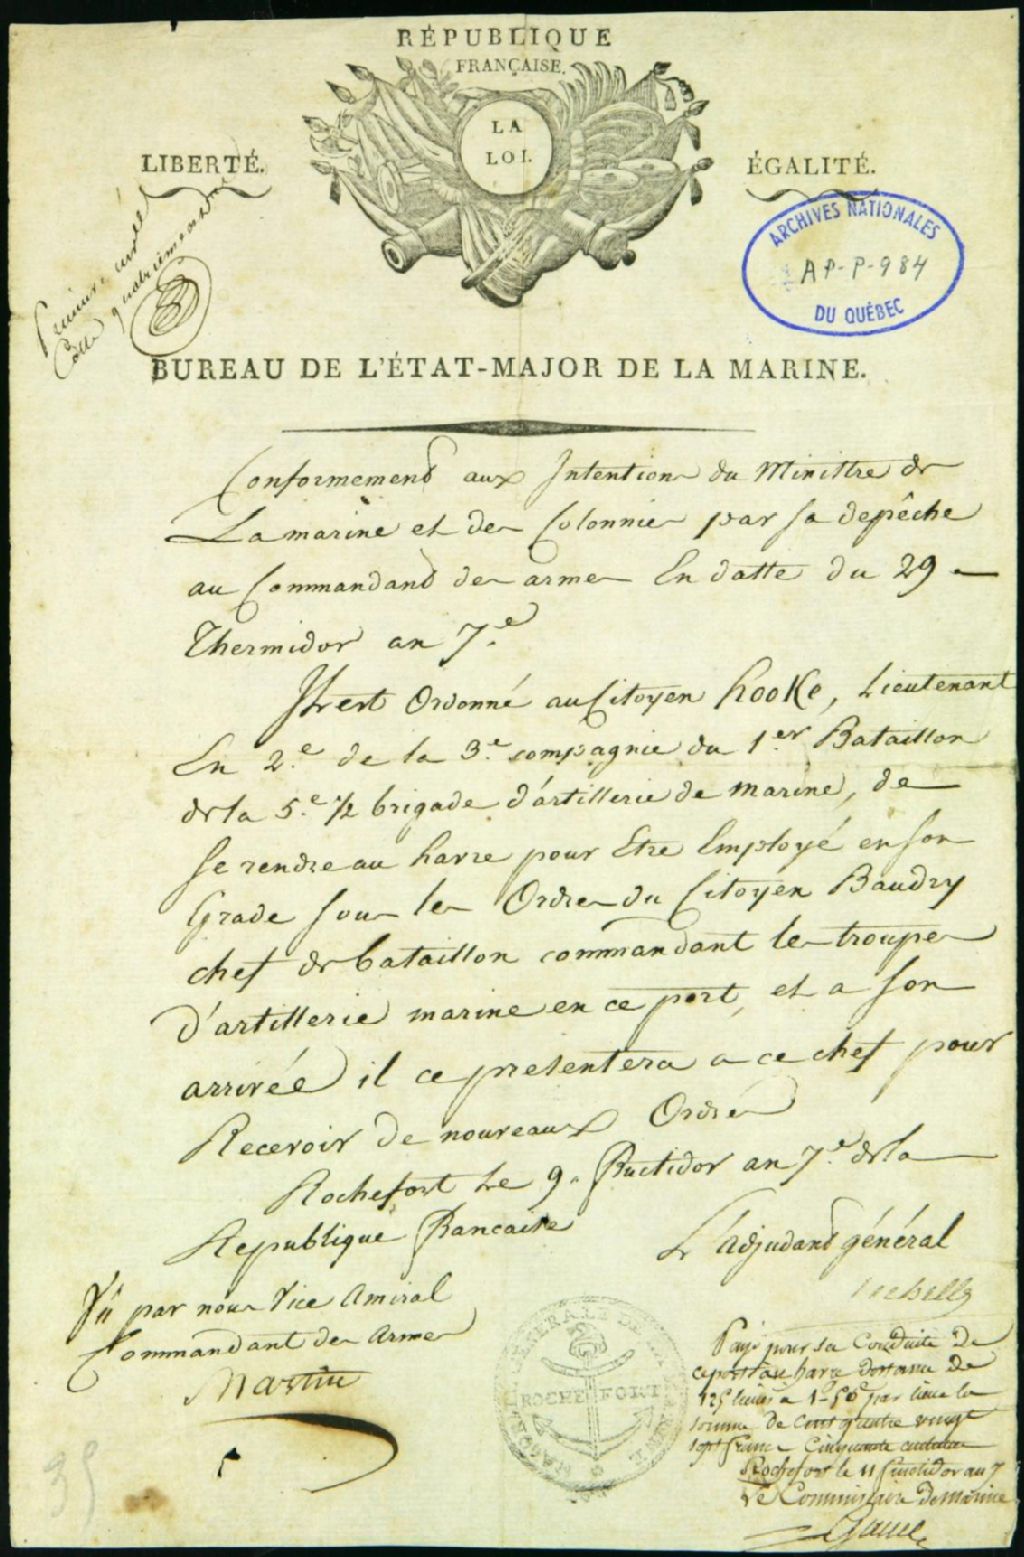 RÉPUBLIQUE
FRANÇAISE.
LA
LOI.
LIBERTÉ.
ÉGALITÉ.
ARCHIVES NATIONALES
AP-P-984
DU QUÉBEC
BUREAU DE L'ÉTAT-MAJOR DE LA MARINE.
Conformemend aux Intentions du Ministre de
La marine et des Colonnies par sa depêche
au Commandand des armes En datte du 29
Thermidor an 7.e
Il est Ordonné au Citoyen hooKe, Lieutenant
En 2.e de la 3.e compagnie du 1.er Bataillon
de la 5.e 1/2 brigade d'artillerie de marine, de
Se rendre au havre pour Etre Employé en Son
Grade Sous les Ordres du Citoyen Baudry
chef de bataillon commandant les troupes
d'artillerie marine en ce port, et a Son
arrivée il ce presentera a ce chef pour
Recevoir de nouveaux Ordres
Rochefort Le 9. Fructidor an 7.e de la
Republique francaise
L'adjudand général
Vû par nous Vice Amiral
Commandant des Armes
Martin
ROCHEFORT
Payé pour sa Conduite de
ce port au havre distance de
125 lieues a 1f 50c par lieue la
somme de Cent quatre vingt
sept francs Cinquante centimes
Rochefort le 11 fructidor an 7
Le Commissaire de marine
35